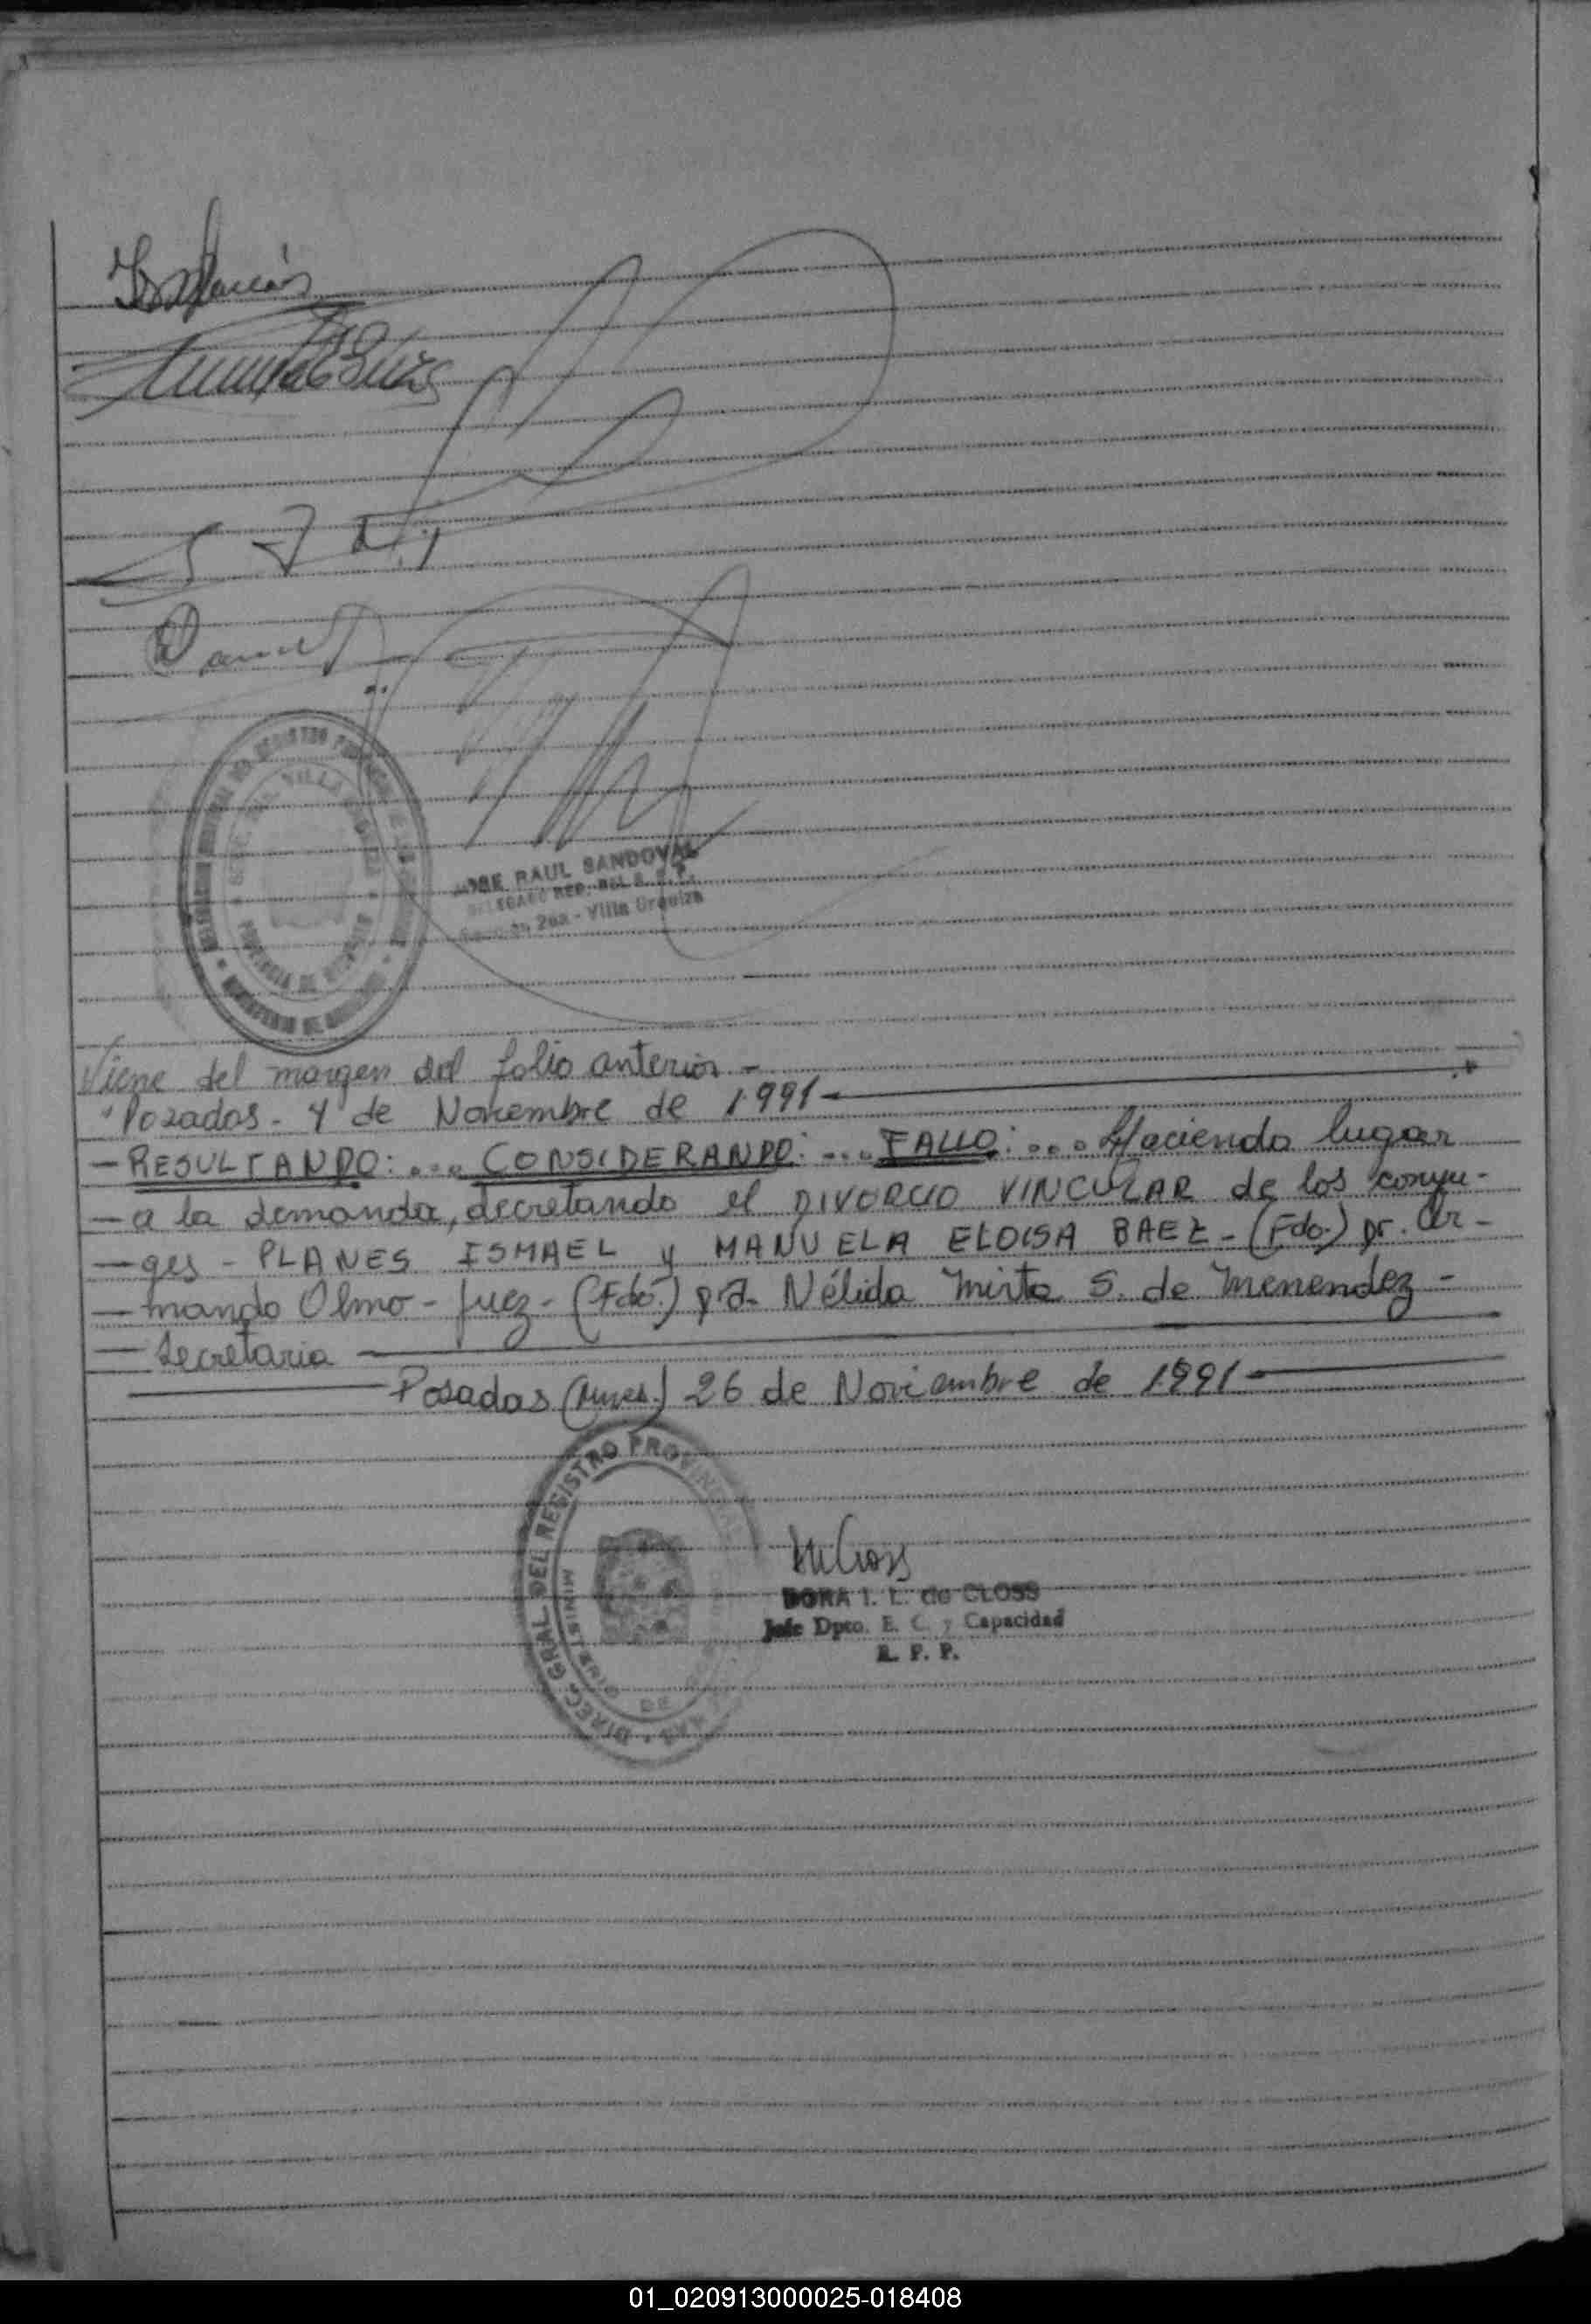 JOSE RAUL SANDOVAL
DELEGADO REG. DEL R. P. P.
Sección 2da - Villa Urquiza
Viene del margen del folio anterior -
"Posadas - 4 de Noviembre de 1991
- RESULTANDO: ... CONSIDERANDO: ... FALLO: ... Haciendo lugar
- a la demanda, decretando el DIVORCIO VINCULAR de los conyu-
- ges - PLANES ISMAEL y MANUELA ELOISA BAEZ - (Fdo.) Dr. Ar-
- mando Olmo - Juez - (Fdo.) Dra. Nélida Mirta S. de Menendez -
- Secretaria
Posadas (Mnes.) 26 de Noviembre de 1991
DIREC. GRAL. DEL REGISTRO PROVINCIAL
MINISTERIO DE
DORA I. L. de CLOSS
Jefe Dpto. E. C. y Capacidad
R. P. P.
01_020913000025-018408